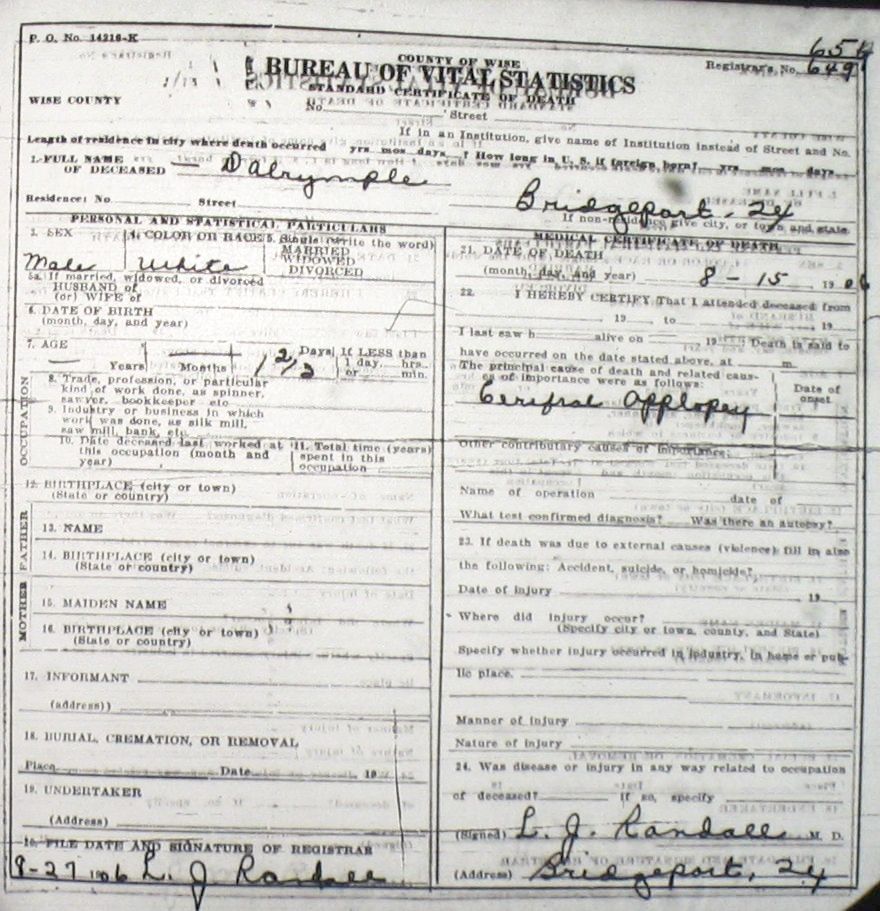 P. O. No. 14216-K
654
COUNTY OF WISE
Registrar's No. 649
BUREAU OF VITAL STATISTICS
STANDARD CERTIFICATE OF DEATH
WISE COUNTY
No. Street
If in an Institution, give name of Institution instead of Street and No.
Length of residence in city where death occurred yrs mos days. ? How long in U. S. if foreign born? yrs mos days.
1. FULL NAME
OF DECEASED — Dalrymple
Residence: No Street
Bridgeport - 24
If non-residence give city, or town and state
PERSONAL AND STATISTICAL PARTICULARS
3. SEX
4. COLOR OR RACE
5. Single (write the word)
MARRIED
WIDOWED
DIVORCED
Male White
5a. If married, widowed, or divorced
HUSBAND of
(or) WIFE of
6. DATE OF BIRTH
(month, day, and year)
7. AGE
Years Months Days
If LESS than
1 day, hrs.
or min.
OCCUPATION
8. Trade, profession, or particular
kind of work done, as spinner,
sawyer, bookkeeper etc
9. Industry or business in which
work was done, as silk mill,
saw mill, bank, etc.
10. Date deceased last worked at
this occupation (month and
year)
11. Total time (years)
spent in this
occupation
12. BIRTHPLACE (city or town)
(State or country)
FATHER
13. NAME
14. BIRTHPLACE (city or town)
(State or country)
MOTHER
15. MAIDEN NAME
16. BIRTHPLACE (city or town)
(State or country)
17. INFORMANT
(address))
18. BURIAL, CREMATION, OR REMOVAL
Place Date 19
19. UNDERTAKER
(Address)
20. FILE DATE AND SIGNATURE OF REGISTRAR
8-27 1906 L. J. Randall
MEDICAL CERTIFICATE OF DEATH
21. DATE OF DEATH
(month, day, and year) 8 - 15 1906
22. I HEREBY CERTIFY That I attended deceased from
19 to 19
I last saw h alive on 19 Death is said to
have occurred on the date stated above, at m.
The principal cause of death and related caus-
es of importance were as follows:
Date of
onset
Cerefral Applopey
Other contributary causes of importance:
Name of operation date of
What test confirmed diagnosis? Was there an autopsy?
23. If death was due to external causes (violence) fill in also
the following: Accident, suicide, or homicide?
Date of injury 19
Where did injury occur?
(Specify city or town, county, and State)
Specify whether injury occurred in industry, in home or pub-
lic place.
Manner of injury
Nature of injury
24. Was disease or injury in any way related to occupation
of deceased? if so, specify
(Signed) L. J. Randall M. D.
(Address) Bridgeport, 24